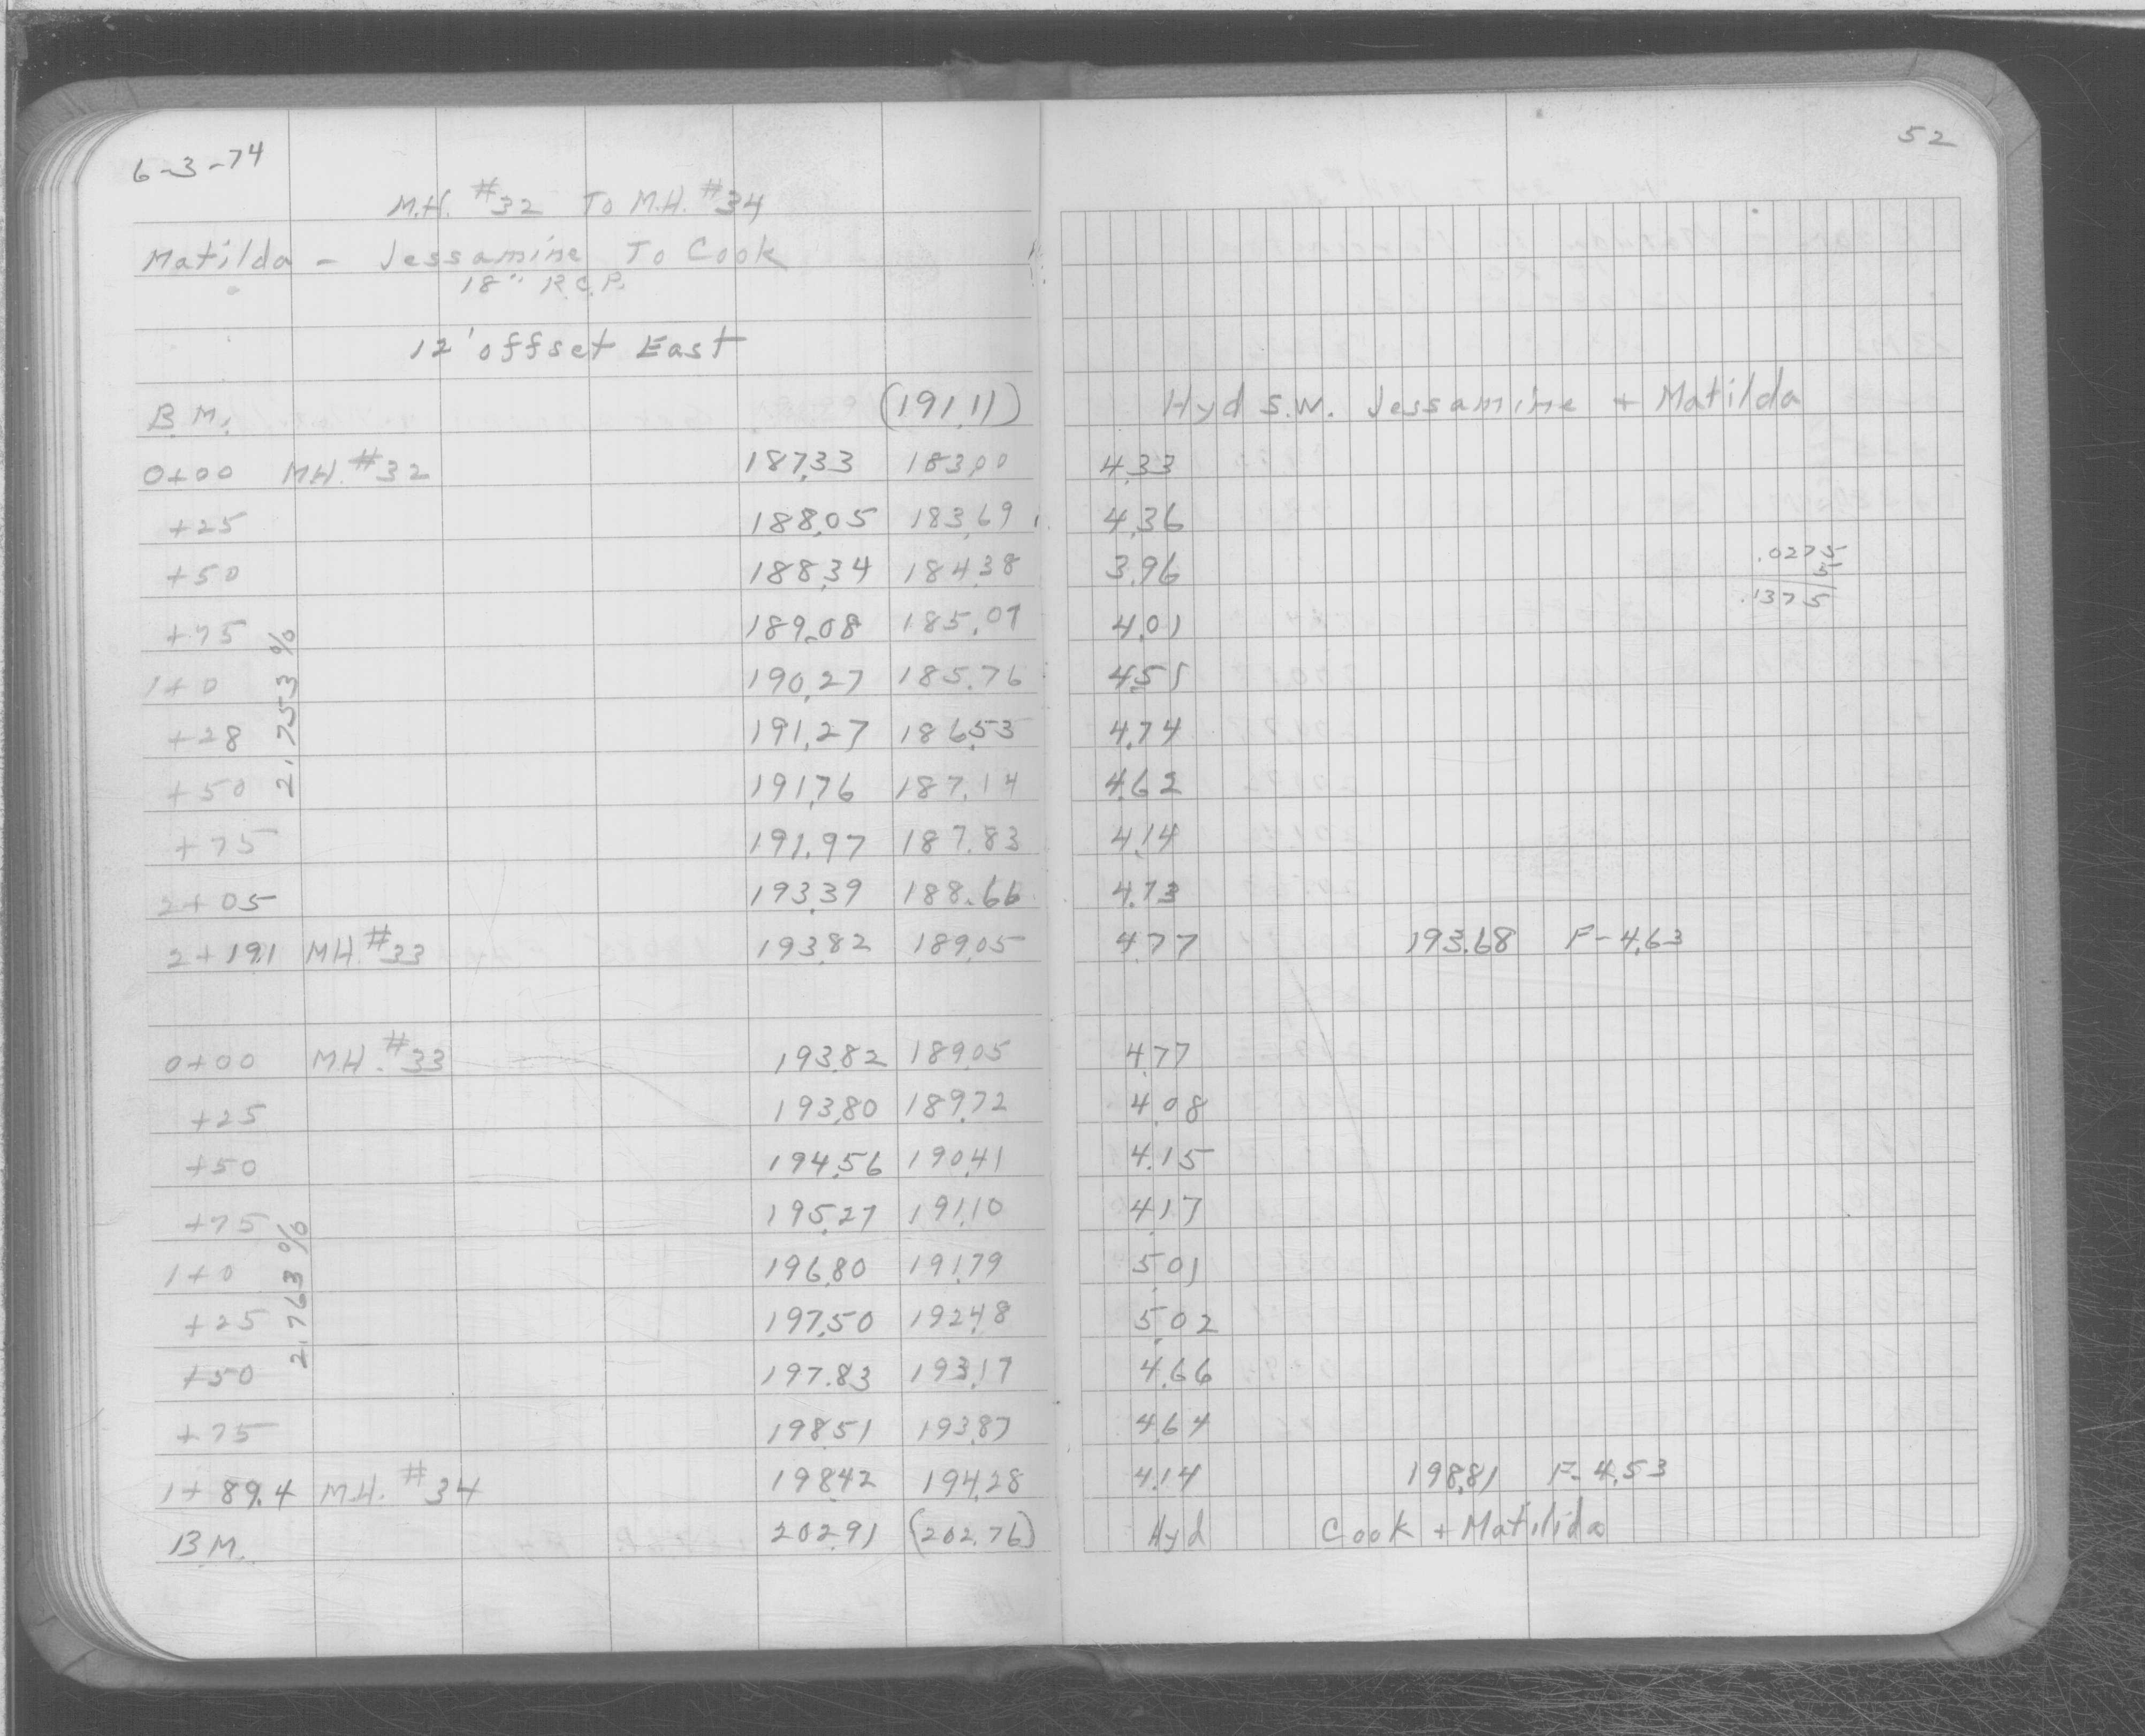 52
6-3-74
M.H. #32 To M.H. #34
Matilda - Jessamine To Cook
18" R.C.P.
12' offset East
B.M. (191.11) Hyd S.W. Jessamine + Matilda
0+00 M.H. #32 187.33 183.00 4.33
+25 188.05 183.69 4.36
+50 188.34 184.38 3.96 .0275
5
+75 189.08 185.07 4.01 .1375
1+0 190.27 185.76 4.51
+28 191.27 186.53 4.74
+50 191.76 187.14 4.62
2.753%
+75 191.97 187.83 4.14
2+05 193.39 188.66 4.73
2+19.1 M.H. #33 193.82 189.05 4.77 193.68 F-4.63
0+00 M.H. #33 193.82 189.05 4.77
+25 193.80 189.72 4.08
+50 194.56 190.41 4.15
+75 195.27 191.10 4.17
1+0 196.80 191.79 5.01
+25 197.50 192.48 5.02
2.763%
+50 197.83 193.17 4.66
+75 198.51 193.87 4.64
1+89.4 M.H. #34 198.42 194.28 4.14 198.81 F-4.53
B.M. 202.91 (202.76) Hyd Cook + Matilida